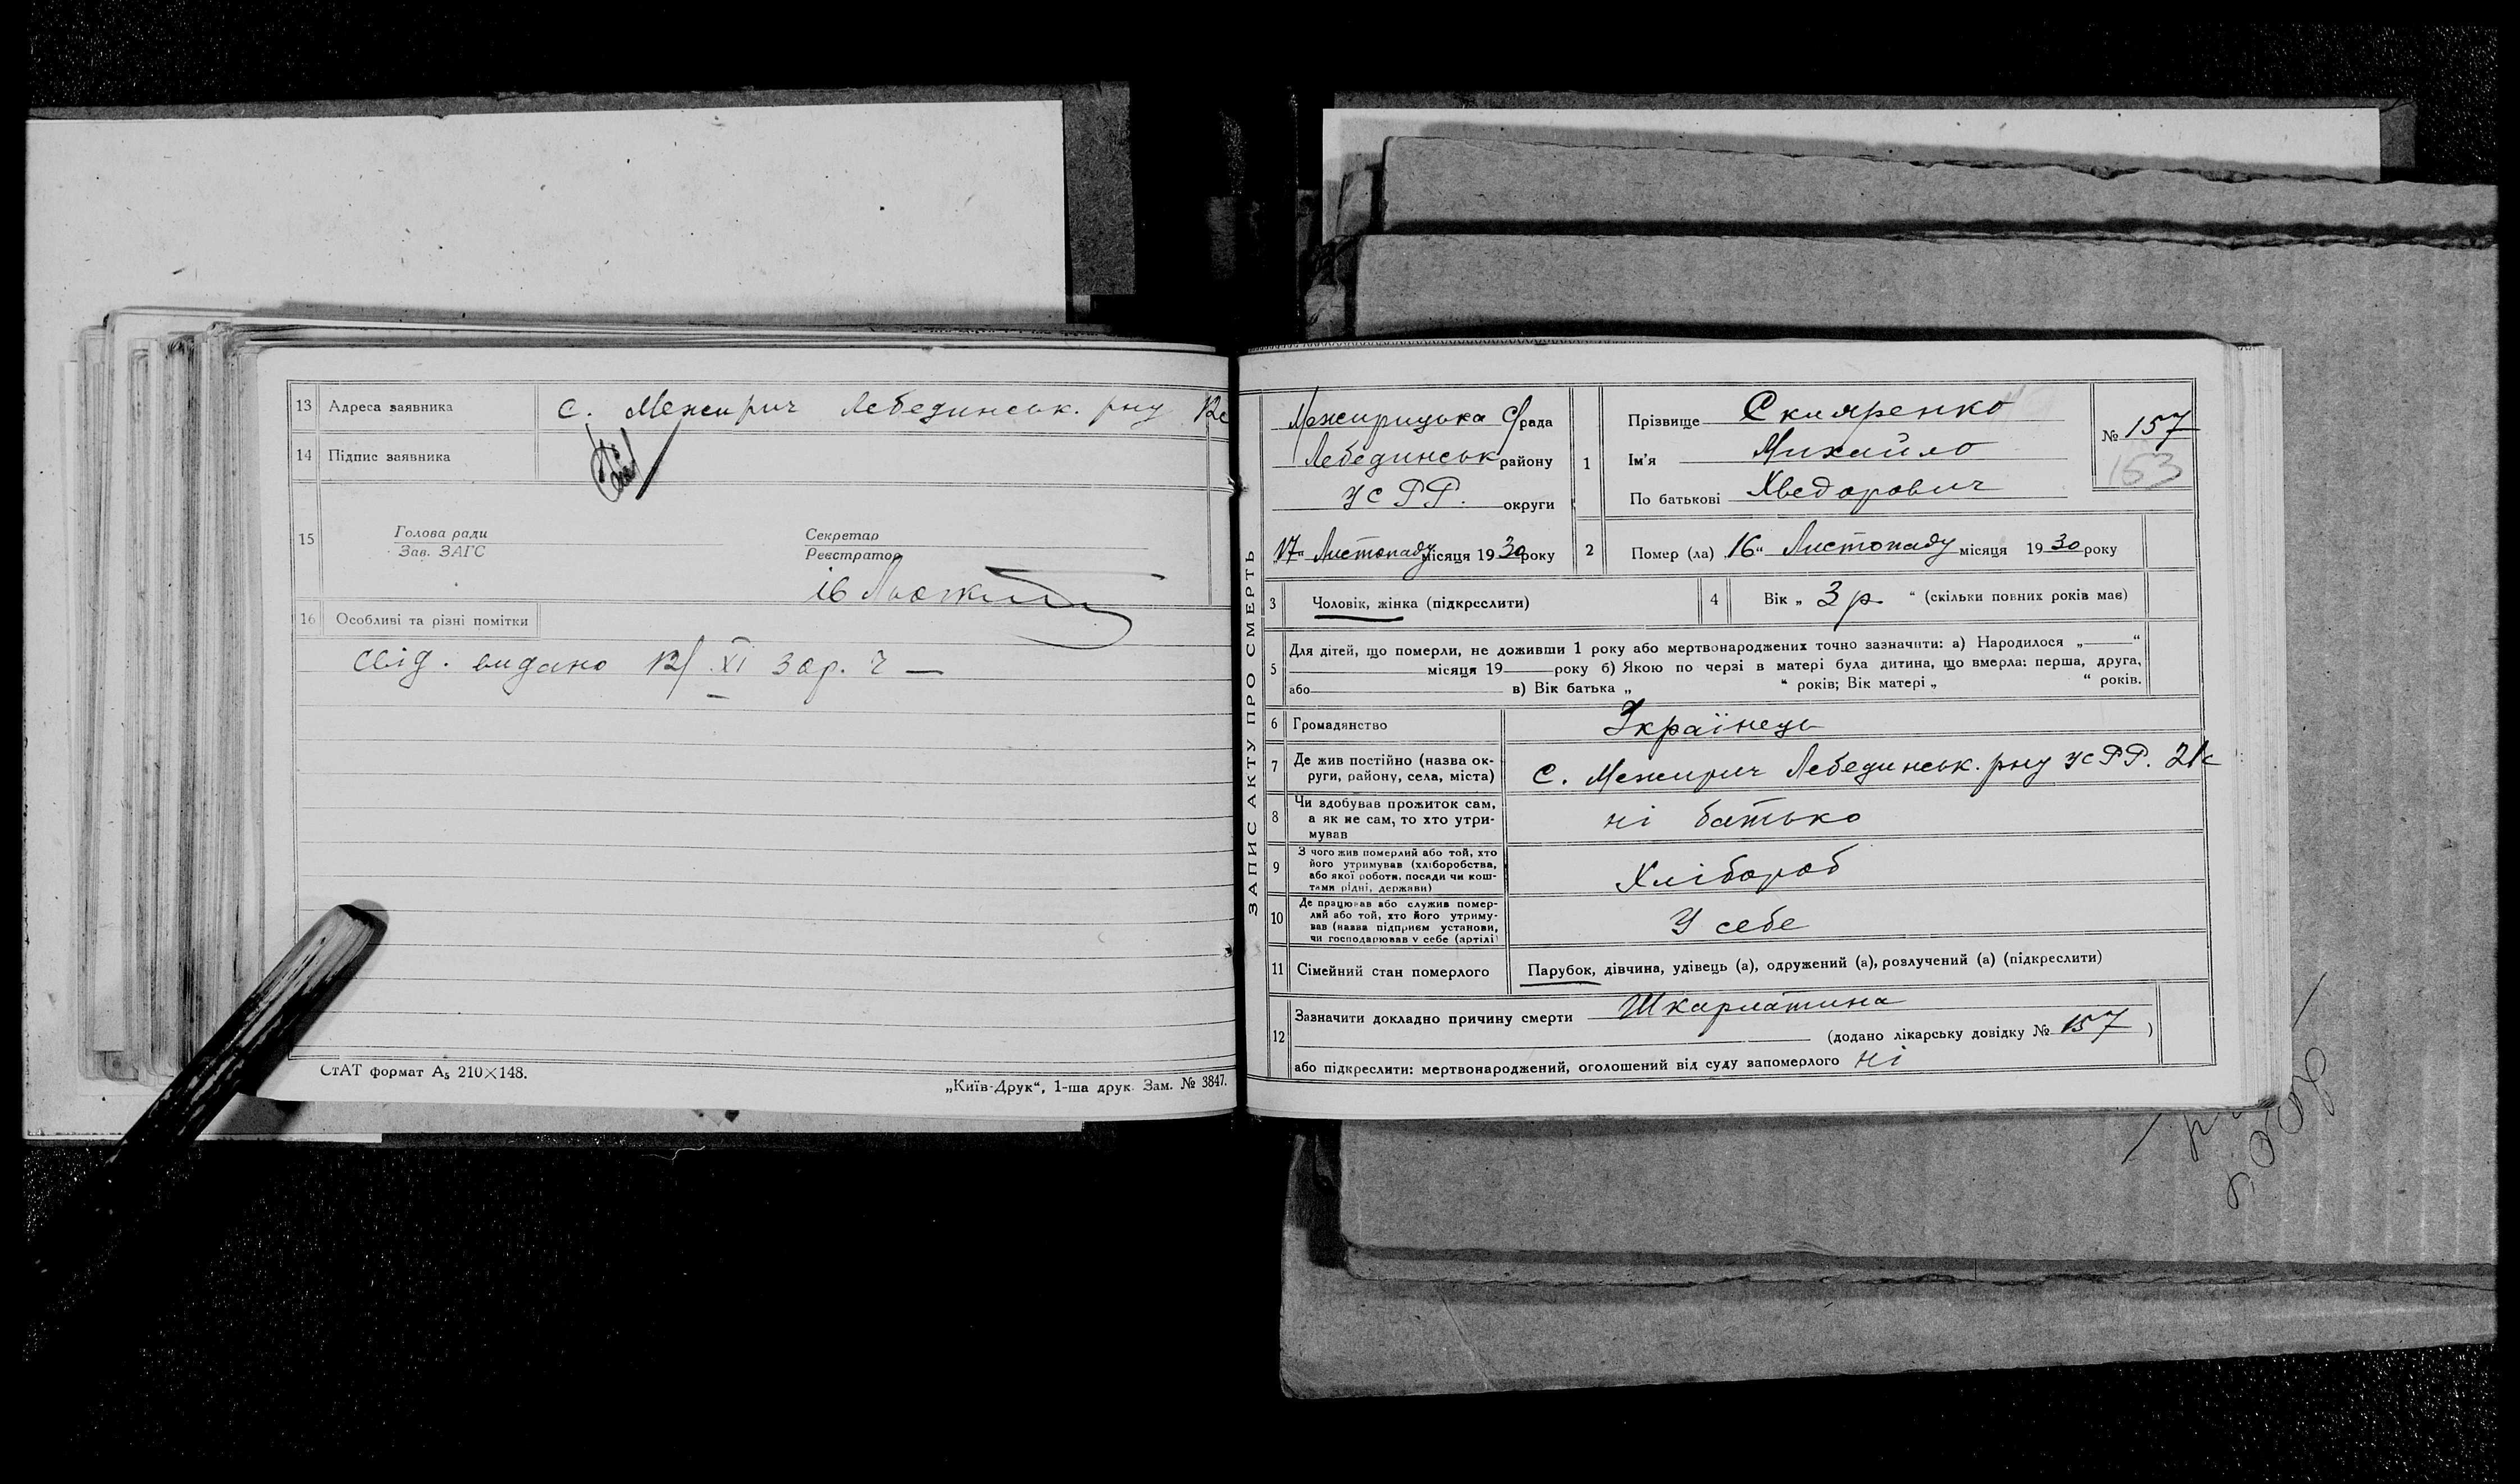 13 Адреса заявника с. Межирич Лебединськ. рну
14 Підпис заявника
15 Голова ради
Зав. ЗАГС
Секретар
Реєстратор
16 Особливі та різні помітки
Свід. видано 12/XI 30р. Ч —
СтАТ формат А₅ 210×148.
„Київ-Друк“, 1-ша друк. Зам. № 3847.
ЗАПИС АКТУ ПРО СМЕРТЬ
Межирицька С/рада
Лебединськ району
УСРР. округи
„17“ Листопаду місяця 1930 року
1 Прізвище Скляренко
Ім'я Михайло
По батькові Хведорович
№ 157
153
2 Помер (ла) 16“ Листопаду місяця 1930 року
3 Чоловік, жінка (підкреслити)
4 Вік „ 3 р. “ (скільки повних років має)
5 Для дітей, що померли, не доживши 1 року або мертвонароджених точно зазначити: а) Народилося „——“
—— місяця 19—— року б) Якою по черзі в матері була дитина, що вмерла: перша, друга,
або—— в) Вік батька „ “ років; Вік матері „ “ років.
6 Громадянство Українець
7 Де жив постійно (назва ок-
руги, району, села, міста) с. Межирич Лебединськ. рну УСРР.
8 Чи здобував прожиток сам,
а як не сам, то хто утри-
мував ні батько
9 З чого жив померлий або той, хто
його утримував (хліборобства,
або якої роботи, посади чи кош-
тами рідні, держави) Хлібороб
10 Де працював або служив помер-
лий або той, хто його утриму-
вав (назва підприєм установи,
чи господарював у себе (артілі) У себе
11 Сімейний стан померлого Парубок, дівчина, удівець (а), одружений (а), розлучений (а) (підкреслити)
12 Зазначити докладно причину смерти Шкарлатина
(додано лікарську довідку № 157 )
або підкреслити: мертвонароджений, оголошений від суду запомерлого ні